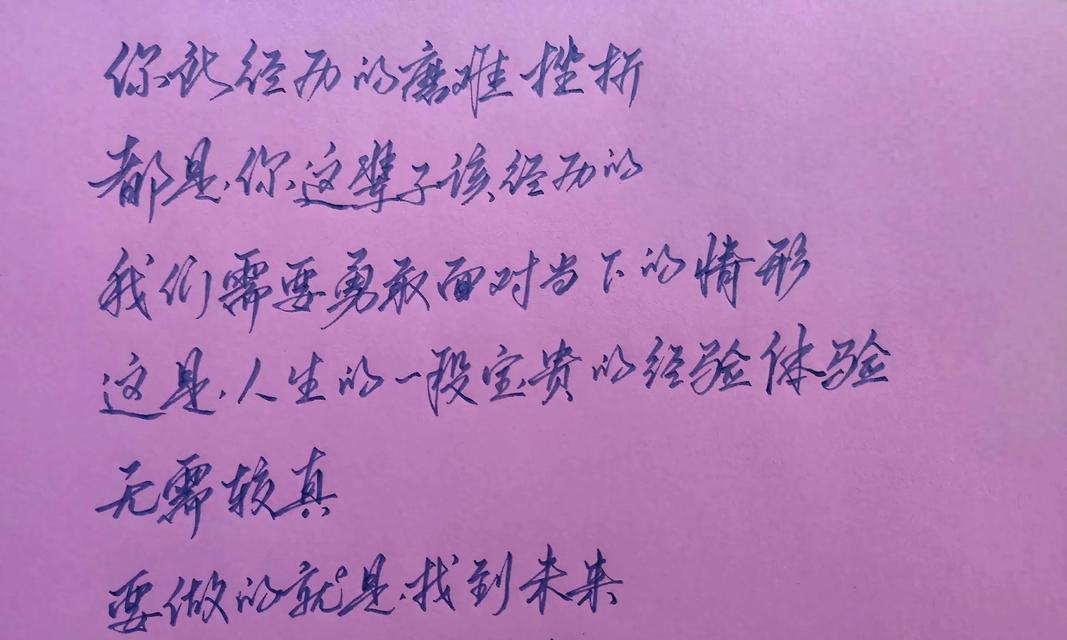 你所经历的磨难挫折
都是你这辈子该经历的
我们需要勇敢面对当下的情形
这是人生的一段宝贵的经验体验
无需较真
要做的就是找到未来